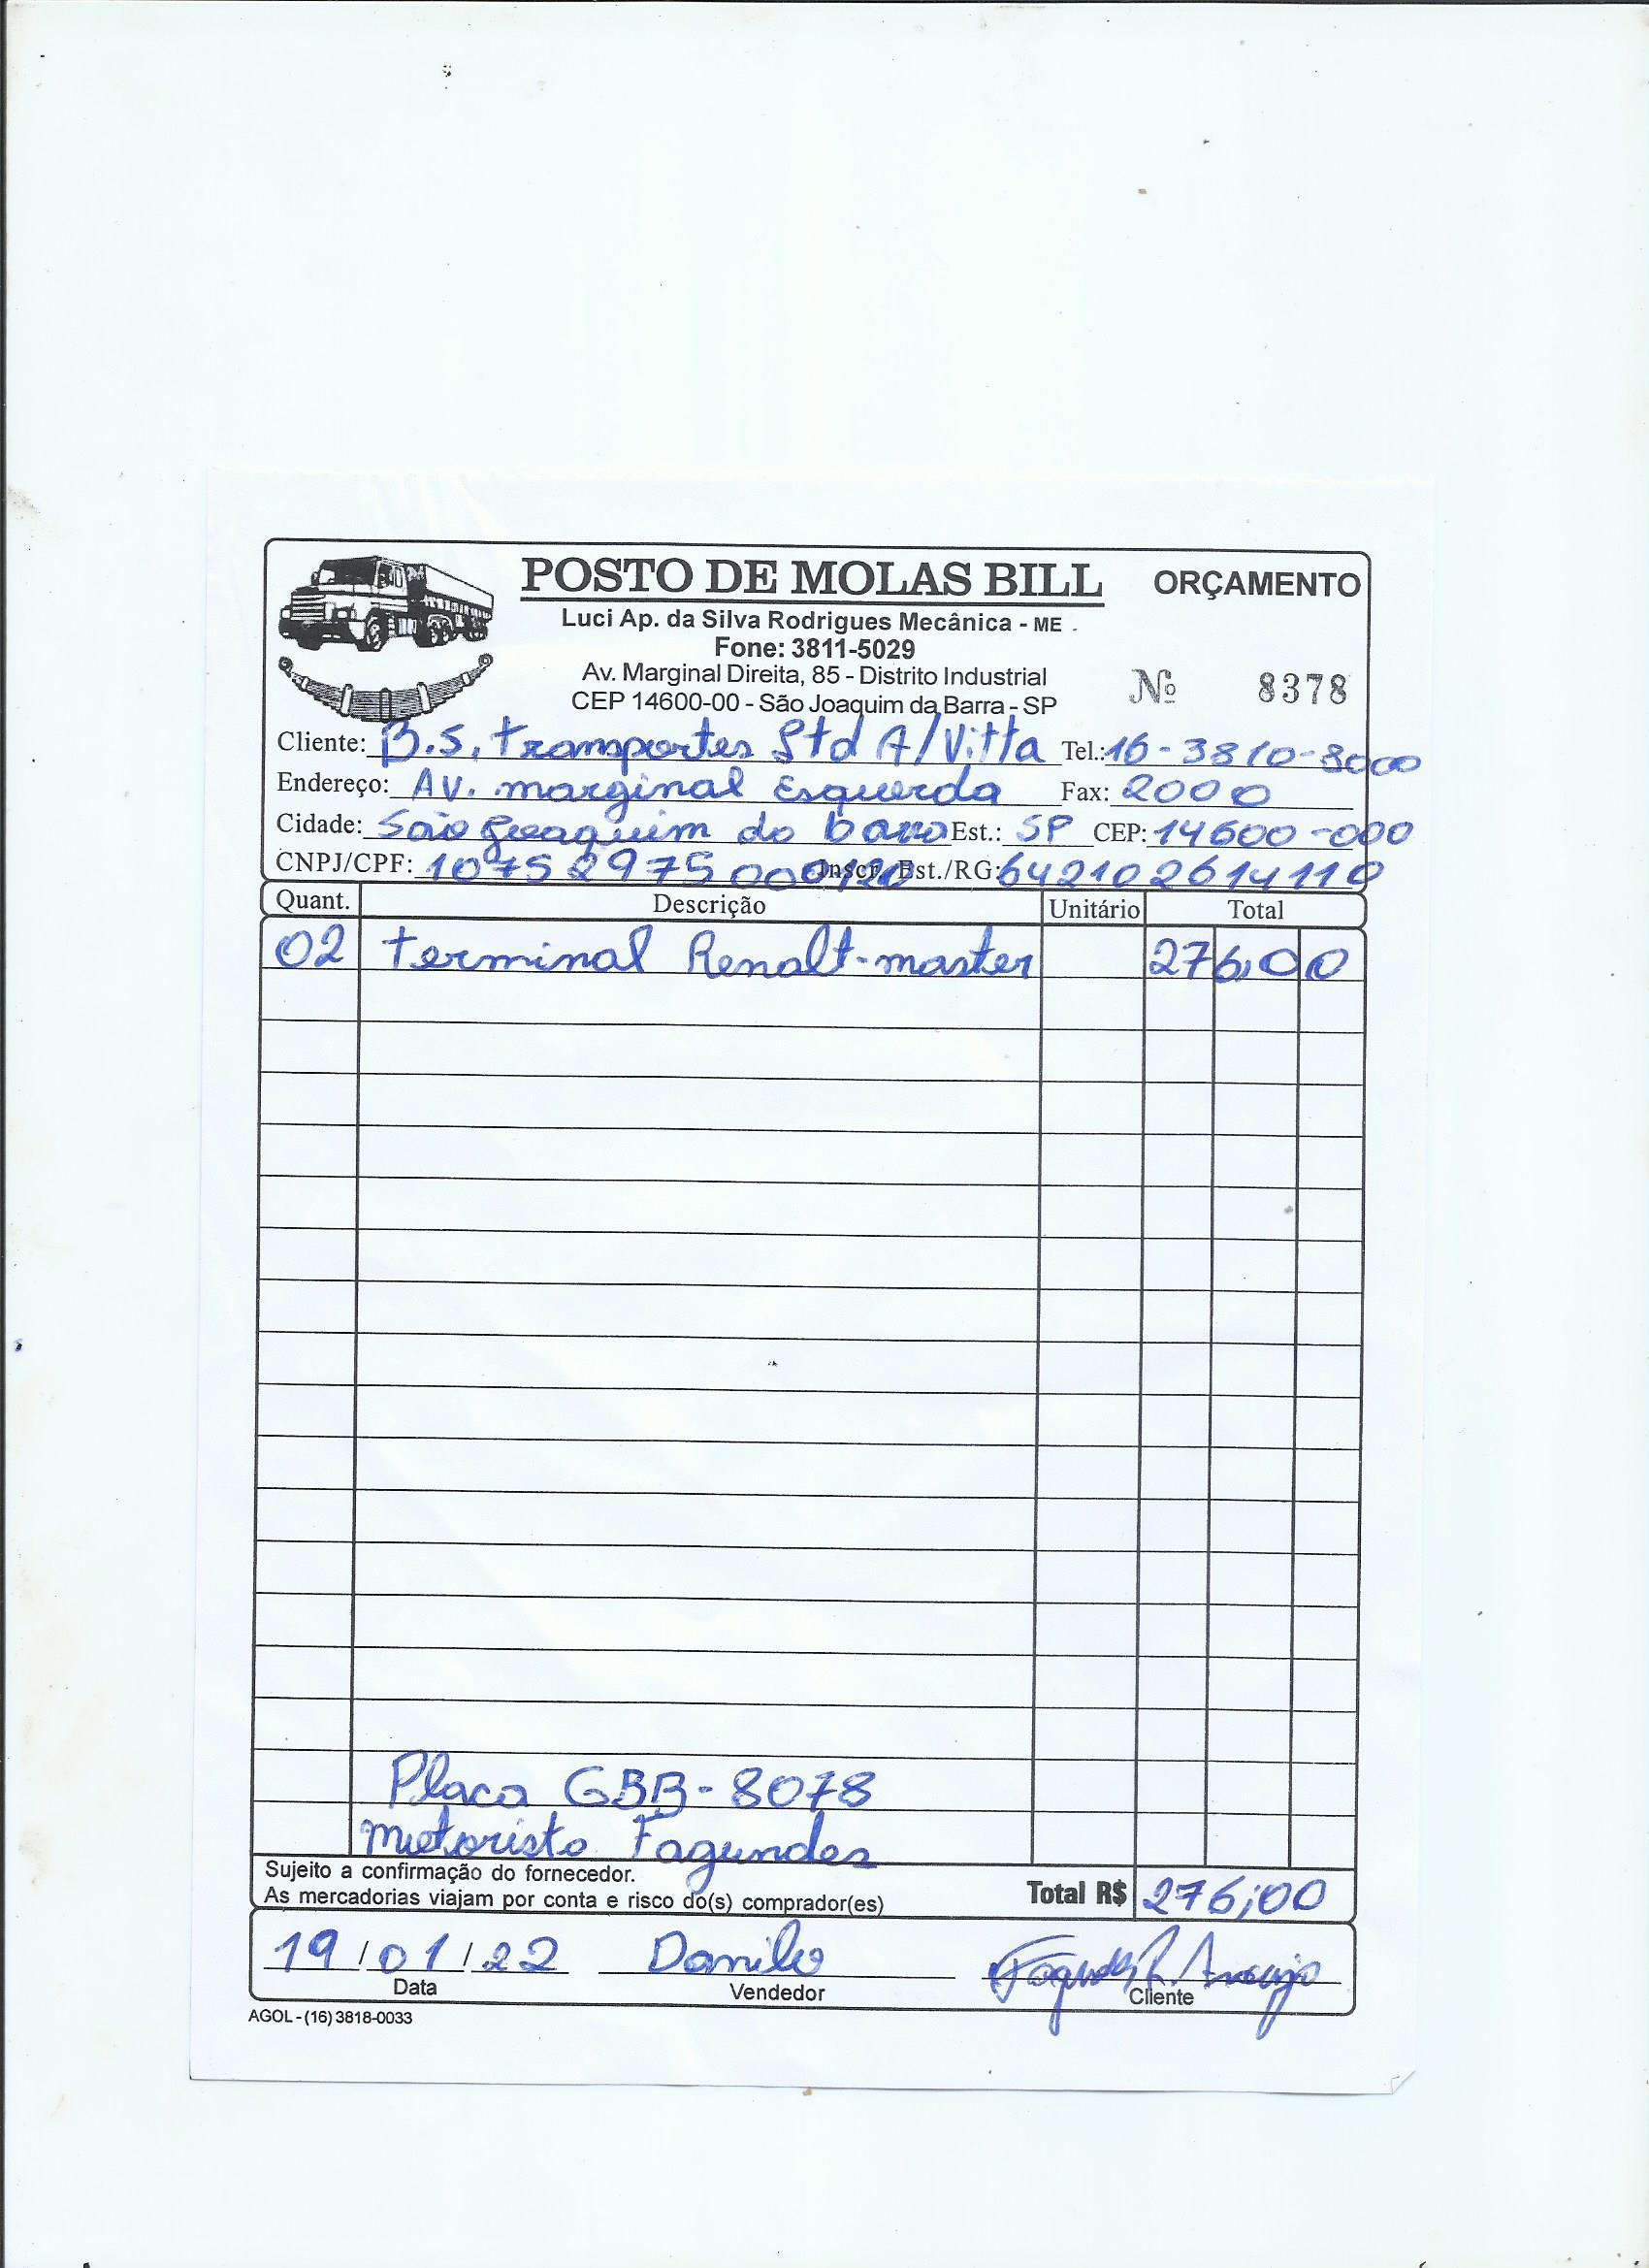 POSTO DE MOLAS BILL ORÇAMENTO
Luci Ap. da Silva Rodrigues Mecânica - ME
Fone: 3811-5029
Av. Marginal Direita, 85 - Distrito Industrial
CEP 14600-00 - São Joaquim da Barra - SP
Nº 8378
Cliente: B.S. transportes Ltd A/Vitta Tel.: 16-3810-8000
Endereço: Av. marginal Esquerda Fax: 2000
Cidade: São Joaquim da barra Est.: SP CEP: 14600-000
CNPJ/CPF: 10752975000120 Inscr. Est./RG: 642102614110
Quant. Descrição Unitário Total
02 terminal Renalt-master 276,00
Placa GBB-8078
Motorista Fagundes
Sujeito a confirmação do fornecedor.
As mercadorias viajam por conta e risco do(s) comprador(es) Total R$ 276,00
19/01/22 Danilo Fagundes R. Araujo
Data Vendedor Cliente
AGOL - (16) 3818-0033